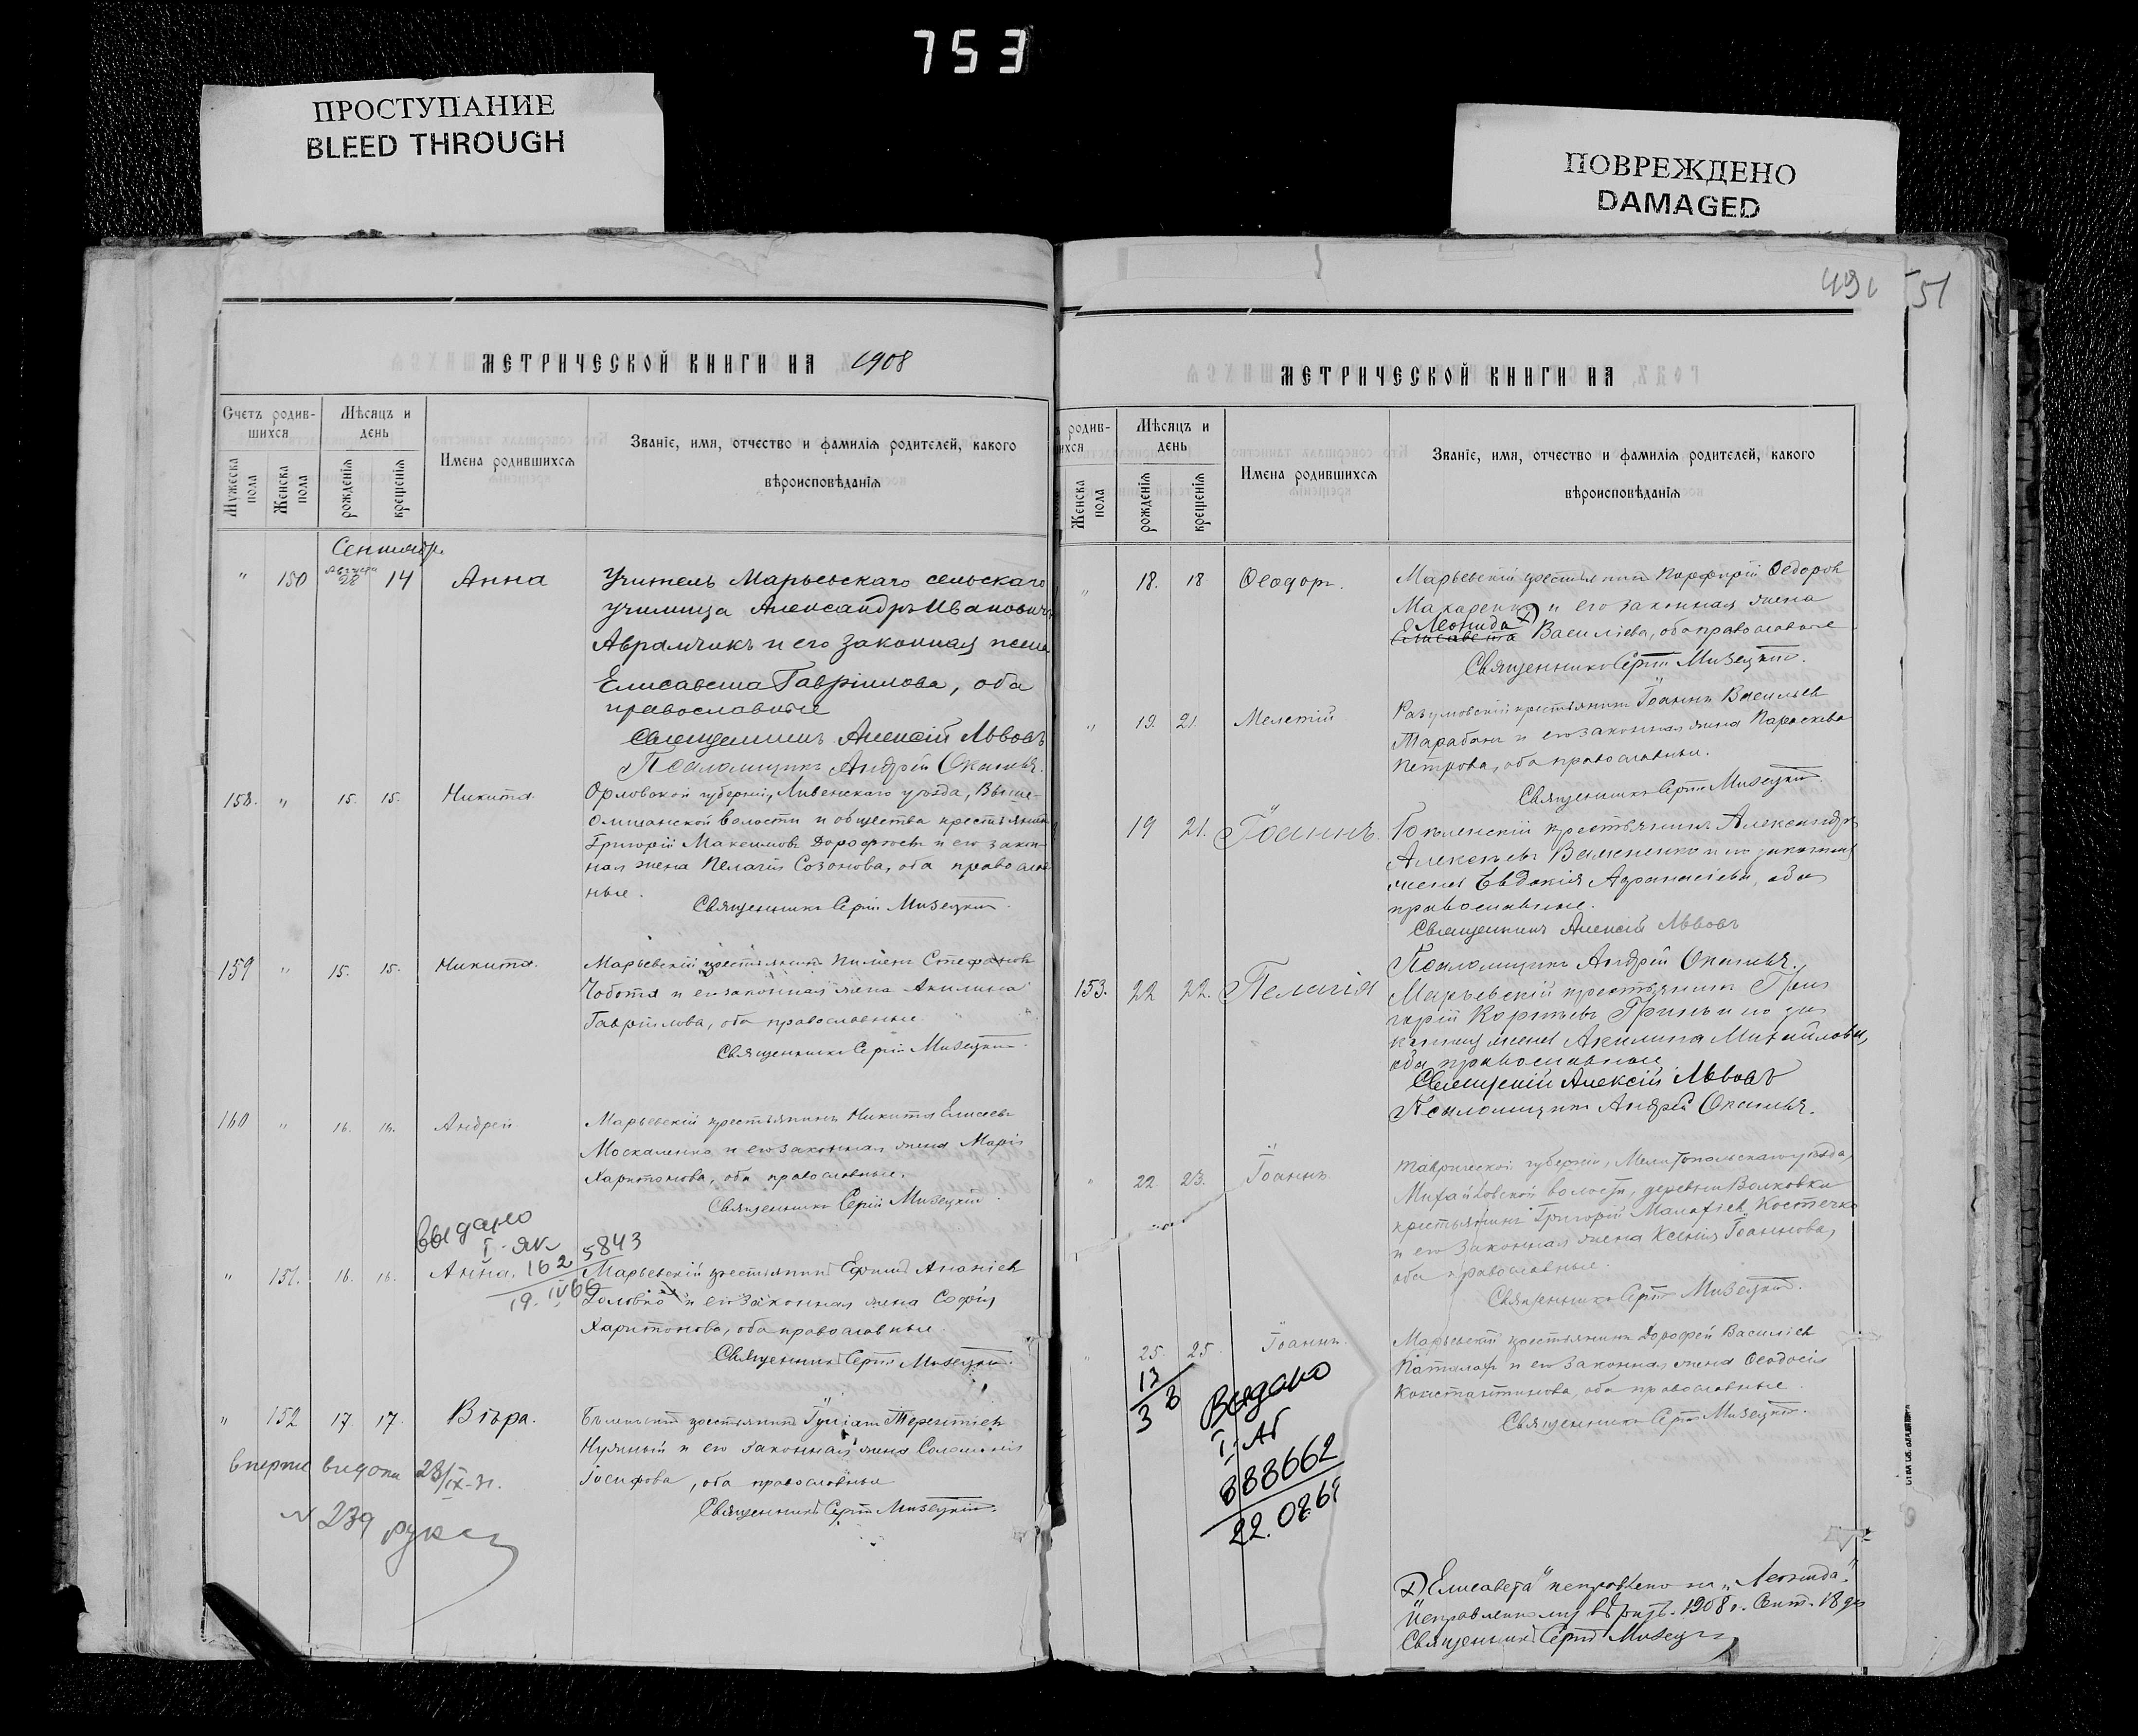 753
ПРОСТУПАНИЕ
BLEED THROUGH
ПОВРЕЖДЕНО
DAMAGED
51
МЕТРИЧЕСКОЙ КНИГИ НА 1908
Счетъ родив-
шихся
Мѣсяцъ и
день
Мужеска
пола
Женска
пола
рожденія
крещенія
Имена родившихся
Званіе, имя, отчество и фамилія родителей, какого
вѣроисповѣданія
Сентябр.
" 150 Августа 28 14 Анна
Учитель Марьевскаго сельскаго
училища Александръ Ивановичъ
Аврамчикъ и его законная жена
Елисавета Гавріилова, оба
православные
Священникъ Алексій Львовъ
Псаломщикъ Андрей
158. " 15. 15. Никита
Орловской губерніи, Ливенскаго уѣзда, Выше-
Ольшанской волости и общества крестьянинъ
Григорій Максимовъ Дорофѣевъ и его закон-
ная жена Пелагія Созонова, оба православ-
ные.
Священникъ Сергій Мизецкій
159 " 15. 15. Никита.
Марьевскій крестьянинъ Пименъ Стефановъ
Чобота и его законная жена Акилина
Гавріилова, оба православные
Священникъ Сергій Мизецкій
160 " 16. 16. Андрей
Марьевскій крестьянинъ Никита Елисеевъ
Москаленко и его законная жена Марія
Харитонова, оба православные.
Священникъ Сергій Мизецкій
Выдано
I-ЯК
5843
" 151. 16. 16. Анна. 162
19. IV 66
Марьевскій крестьянинъ Ефимъ Ананіевъ
Головко и его законная жена Софія
Харитонова, оба православные
Священникъ Сергій Мизецкій
" 152 17. 17. Вѣра.
крестьянинъ Терентіевъ
и его законная жена
Іосифова, оба православные
Священникъ Сергій Мизецкій
N 239
МЕТРИЧЕСКОЙ КНИГИ НА
родив-
ихся
Мѣсяцъ и
день
Женска
пола
рожденія
крещенія
Имена родившихся
Званіе, имя, отчество и фамилія родителей, какого
вѣроисповѣданія
" 18. 18 Ѳеодоръ.
Марьевскій крестьянинъ Порфирій Ѳедоровъ
Макаренко и его законная жена
Леонида
Елисавета Васильева, оба православные
Священникъ Сергій Мизецкій.
" 19. 21. Мелетій
Разумовскій крестьянинъ Іоаннъ Васильевъ
Тарабанъ и его законная жена Параскева
Петрова, оба православные.
Священникъ Сергій Мизецкій
19 21. Іоаннъ.
крестьянинъ Александръ
Алексѣевъ и его законная
жена Евдокія Афанасіева, оба
православные.
Священникъ Алексій Львовъ
Псаломщикъ Андрей
153. 22 22. Пелагія
Марьевскій крестьянинъ Гри-
горій Гринь и его за-
конная жена Акилина Михайлова,
оба православные
Алексій Львовъ
Псаломщикъ Андрей
" 22 23. Іоаннъ
Таврической губерніи, Мелитопольскаго уѣзда,
Михайловской волости, деревни Волковки
крестьянинъ Григорій Костечко
и его законная жена Ксенія Іоаннова,
оба православные.
Священникъ Сергій Мизецкій.
25. 25. Іоаннъ.
Марьевскій крестьянинъ Дорофей Василіевъ
и его законная жена Ѳеодосія
Константинова, оба православные
Священникъ Сергій Мизецкій.
Выдано
I-АГ
888662
"Елисавета" исправлено на "Леонида".
1908 г. Сент. 18 дня
Священникъ Сергій Мизецкій